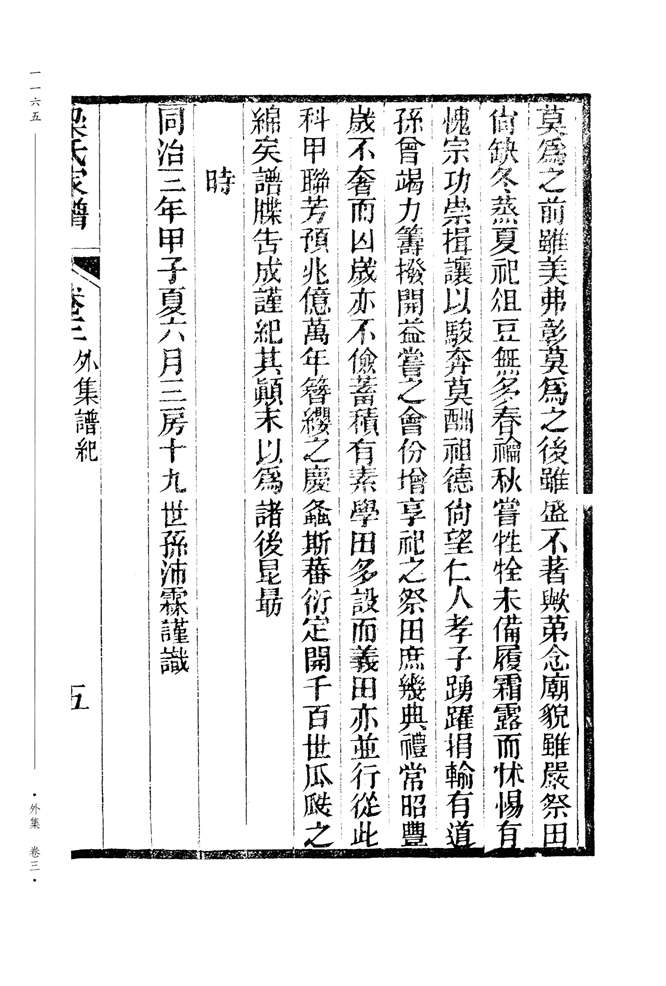 莫爲之前雖美弗彰莫爲之後雖盛不著歟苐念廟貌雖嚴祭田
尙缺冬蒸夏祀俎豆無多春禴秋嘗牲牷未備履霜露而怵惕有
愧宗功崇揖讓以駿奔莫酬祖德尙望仁人孝子踴躍捐輸有道
孫曾竭力籌撥開益嘗之會份增享祀之祭田庶幾典禮常昭豐
歲不奢而凶歲亦不儉蓄積有素學田多設而義田亦並行從此
科甲聯芳預兆億萬年簪纓之慶螽斯蕃衍定開千百世瓜瓞之
綿矣譜牒告成謹紀其顚末以爲諸後昆勗
時
同治三年甲子夏六月三房十九世孫沛霖謹識
梁氏家譜
卷三
外集譜紀
五
一一六五
·外集 卷三·